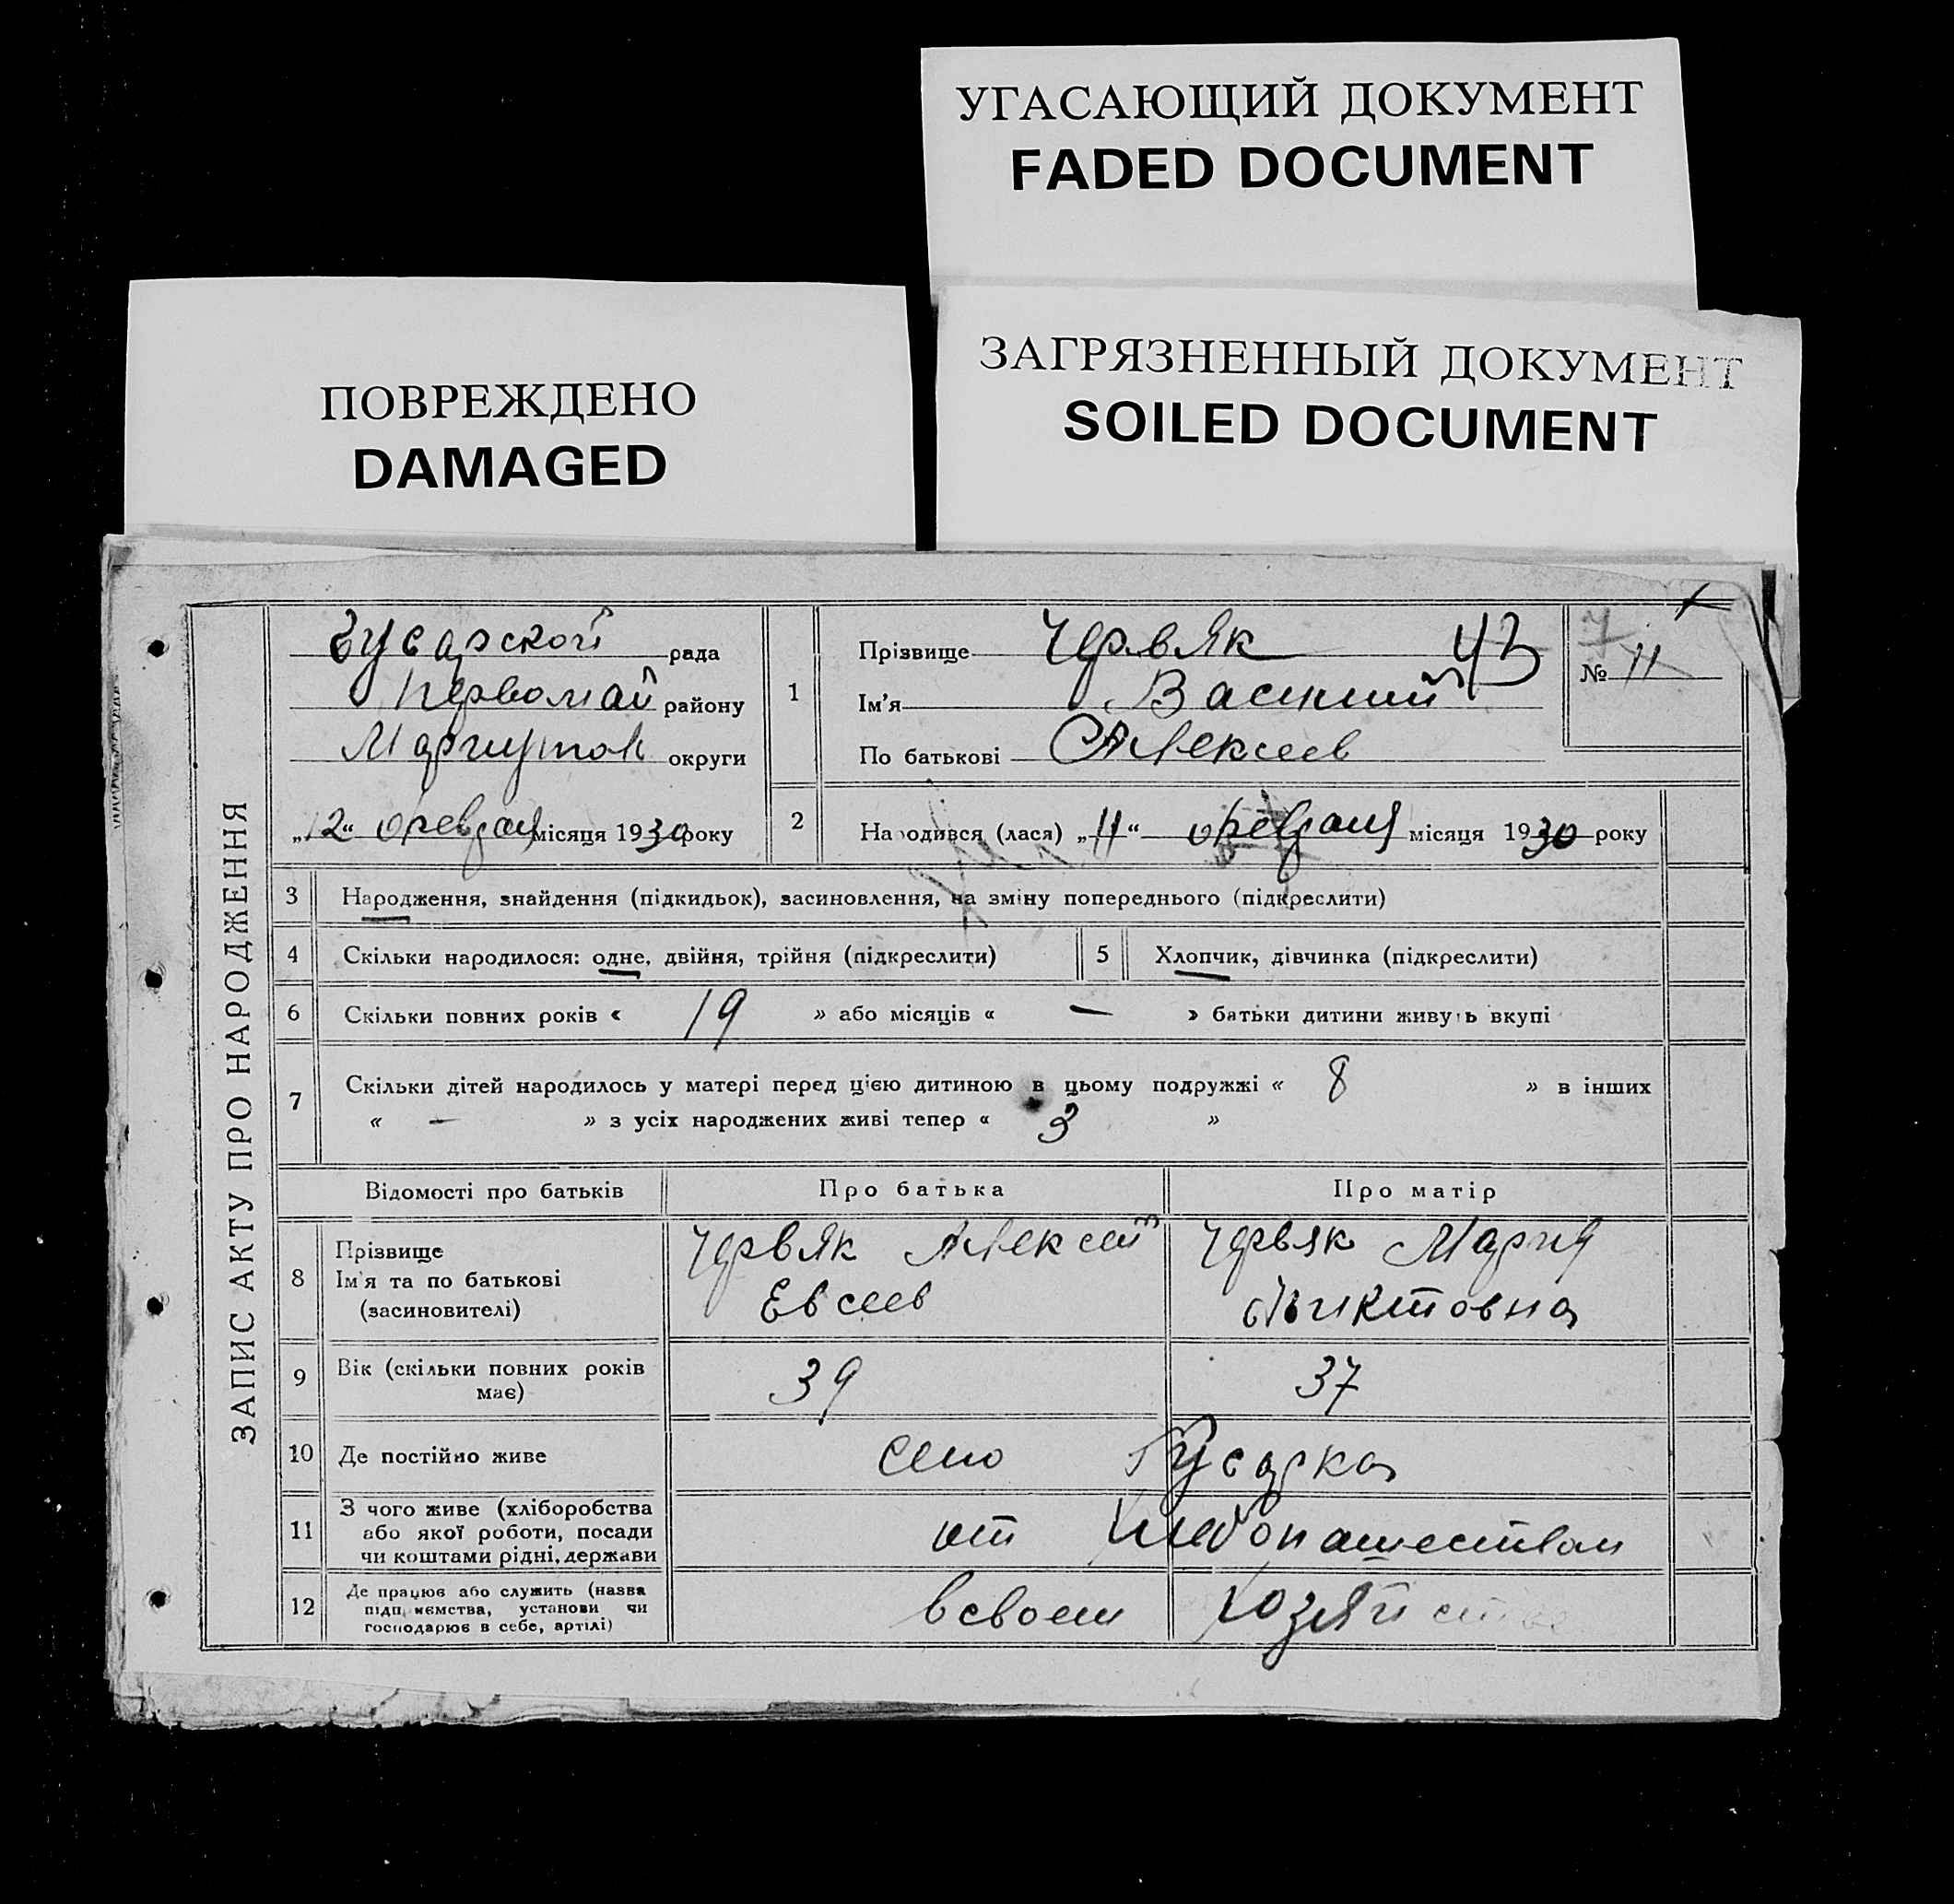 УГАСАЮЩИЙ ДОКУМЕНТ
FADED DOCUMENT
ЗАГРЯЗНЕННЫЙ ДОКУМЕНТ
SOILED DOCUMENT
ПОВРЕЖДЕНО
DAMAGED
ЗАПИС АКТУ ПРО НАРОДЖЕННЯ
Гусарской рада
Первомай району
Мариупол округи
„12“ февраля місяця 1930 року
1
Прізвище Червяк 43
Ім'я Василий
По батькові Алексеев
№ 11
2 Народився (лася) „11“ февраля місяця 1930 року
3 Народження, знайдення (підкидьок), засиновлення, на зміну попереднього (підкреслити)
4 Скільки народилося: одне, двійня, трійня (підкреслити) 5 Хлопчик, дівчинка (підкреслити)
6 Скільки повних років « 19 » або місяців « — » батьки дитини живуть вкупі
7 Скільки дітей народилось у матері перед цією дитиною в цьому подружжі « 8 » в інших
« — » з усіх народжених живі тепер « 3 »
Відомості про батьків Про батька Про матір
8 Прізвище
Ім'я та по батькові
(засиновителі)
Червяк Алексей
Евсеев
Червяк Мария
9 Вік (скільки повних років
має)
39 37
10 Де постійно живе село Гусарка
11 З чого живе (хліборобства
або якої роботи, посади
чи коштами рідні, держави
от хлебопашеством
12 Де працює або служить (назва
підприємства, установи чи
господарює в себе, артілі)
в своем хозяйстве